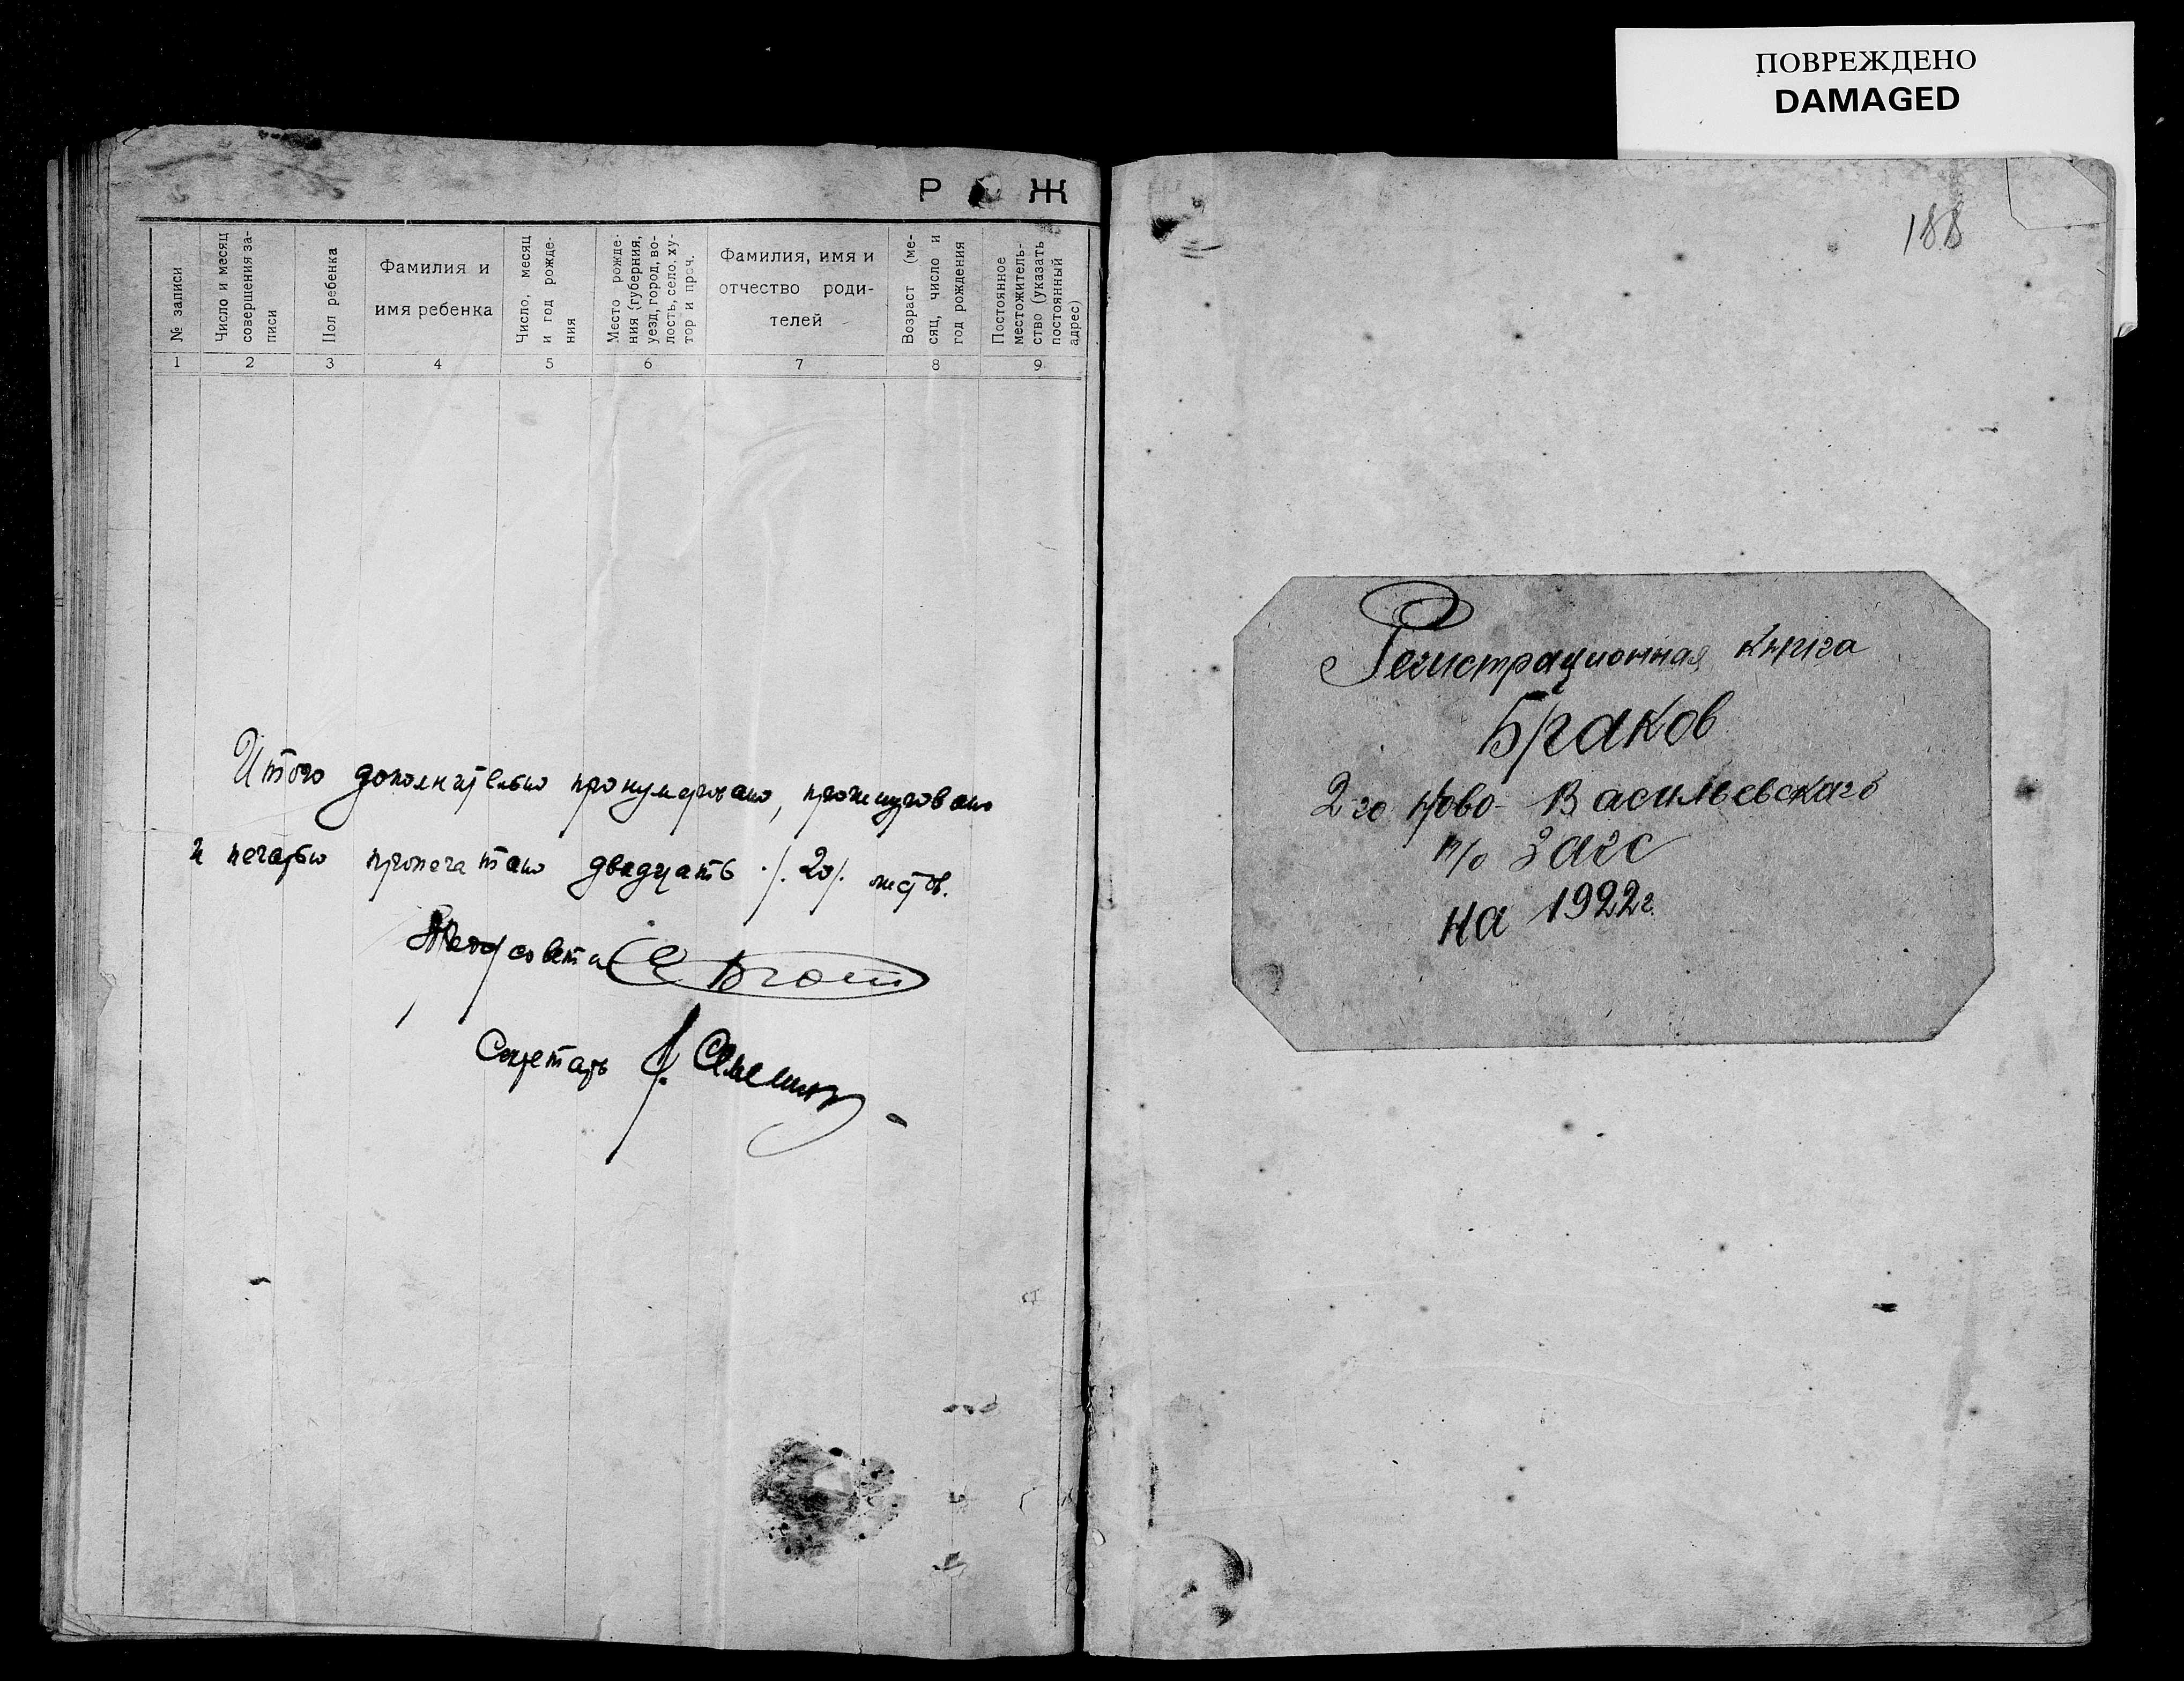 ПОВРЕЖДЕНО
DAMAGED
Р О Ж
№ записи
Число и месяц
совершения за-
писи
Пол ребенка
Фамилия и
имя ребенка
Число, месяц
и год рожде-
ния
Место рожде-
ния (губерния,
уезд, город, во-
лость, село, ху-
тор и проч.
Фамилия, имя и
отчество роди-
телей
Возраст (ме-
сяц, число и
год рождения
Постоянное
местожитель-
ство (указать
постоянный
адрес)
1 2 3 4 5 6 7 8 9
Итого дополнительно пронумеровано, прошнуровано
и печатью пропечатано двадцать ./. 20/. листов.
совета
Секретарь
188
Регистрационная книга
Браков
2-го Ново-Васильевскаго
п/о Загс
на 1922 г.